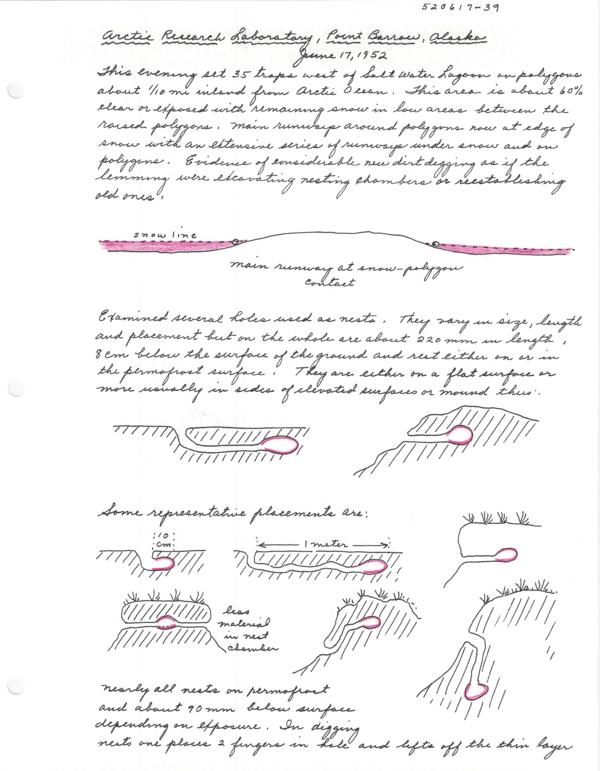 520617-39
Arctic Research Laboratory, Point Barrow, Alaska
June 17, 1952
This evening set 35 traps west of Salt Water Lagoon on polygons
about 1/10 mi inland from Arctic Ocean. This area is about 60%
clear or exposed with remaining snow in low areas between the
raised polygons. Main runways around polygons now at edge of
snow with an extensive series of runways under snow and on
polygons. Evidence of considerable new dirt digging as if the
lemming were excavating nesting chambers or reestablishing
old ones.
snow line
main runway at snow-polygon
contact
Examined several holes used as nests. They vary in size, length
and placement but on the whole are about 220 mm in length,
8 cm below the surface of the ground and rest either on or in
the permofrost surface. They are either on a flat surface or
more usually in sides of elevated surfaces or mound thus:
Some representative placements are:
10
cm
1 meter
less
material
in nest
chamber
nearly all nests on permofrost
and about 90 mm below surface
depending on exposure. In digging
nests one places 2 fingers in hole and lifts off the thin layer